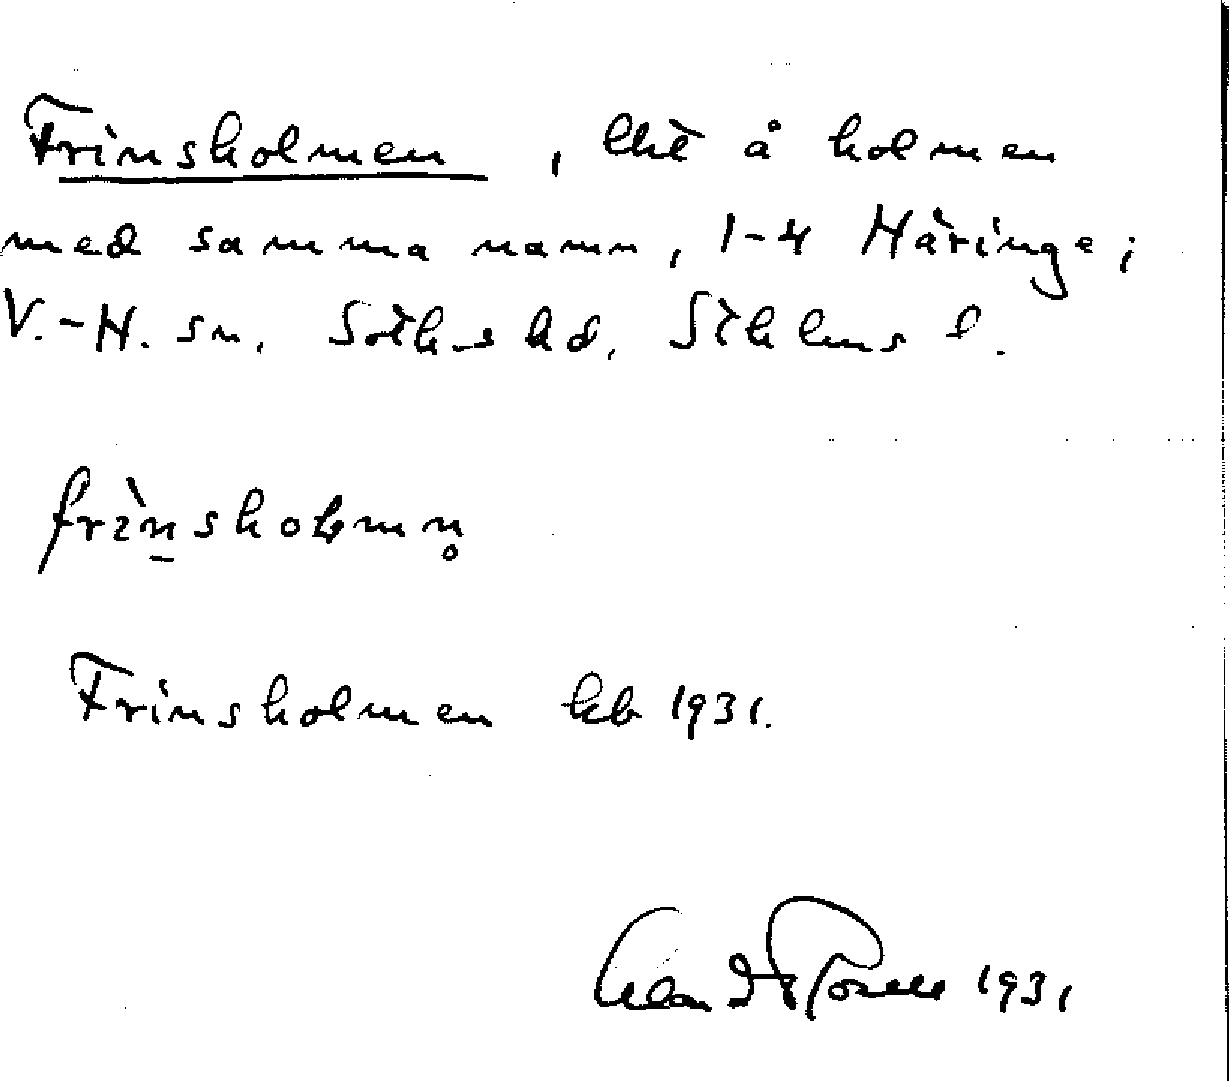 Frinsholmen, lht å holmen
med samma namn, 1-4 Häringe;
V.-H. sn. Soths hd, Sthlms l.
frìnshoḷmṇ
Frinsholmen kb 1931.
1931